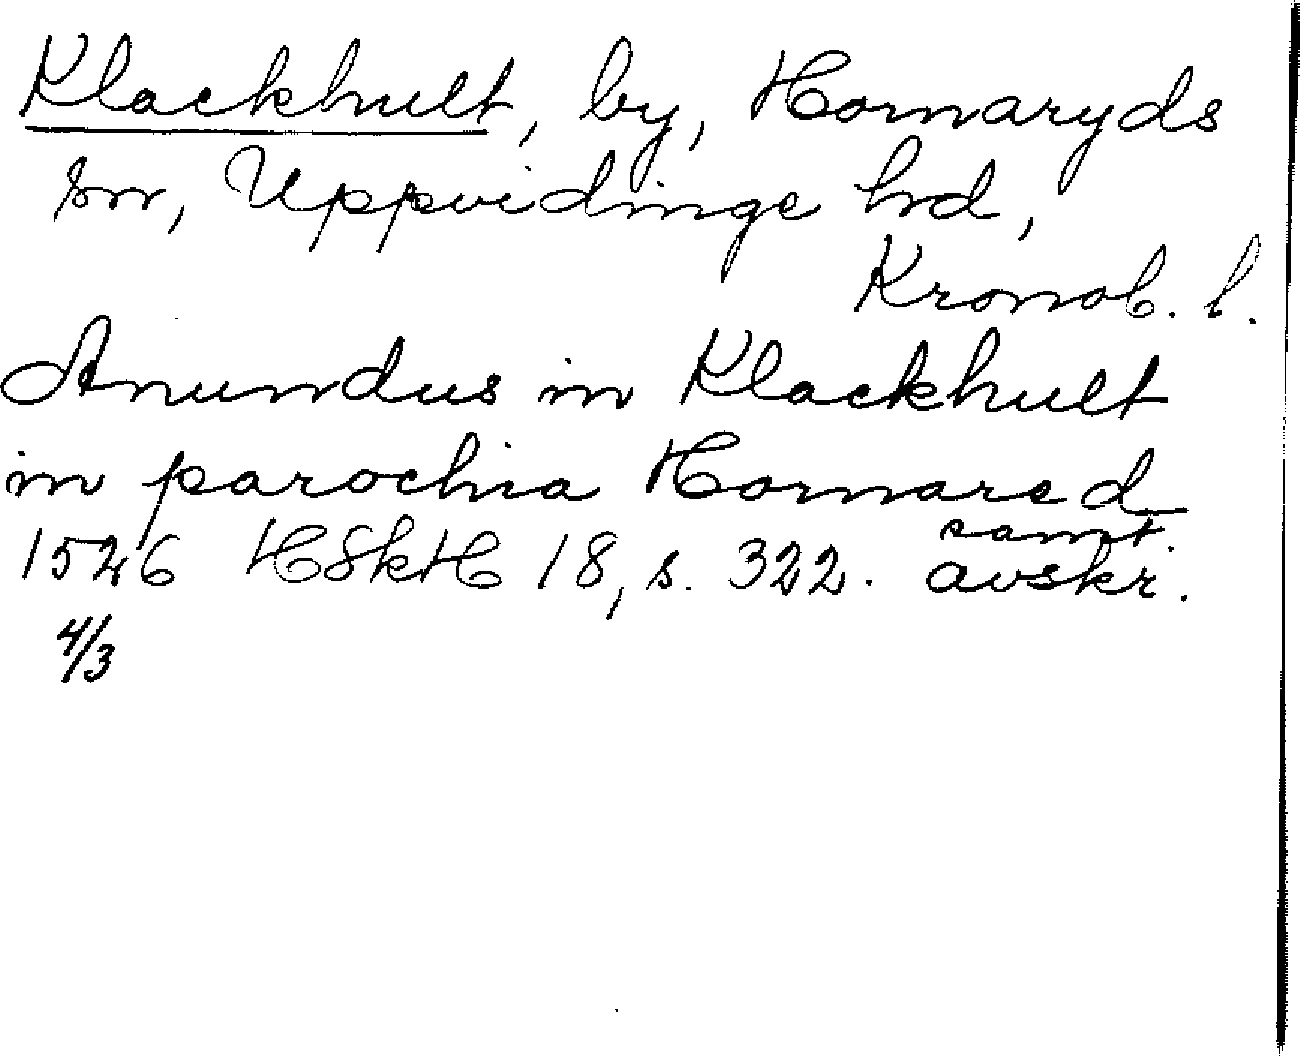 Klackhult, by, Hornaryds
sn, Uppvidinge hrd,
Kronob. l.
Anundus in Klackhult
in parochia Hornared
1526 HSkH 18, s. 322. samt.
avskr.
4/3